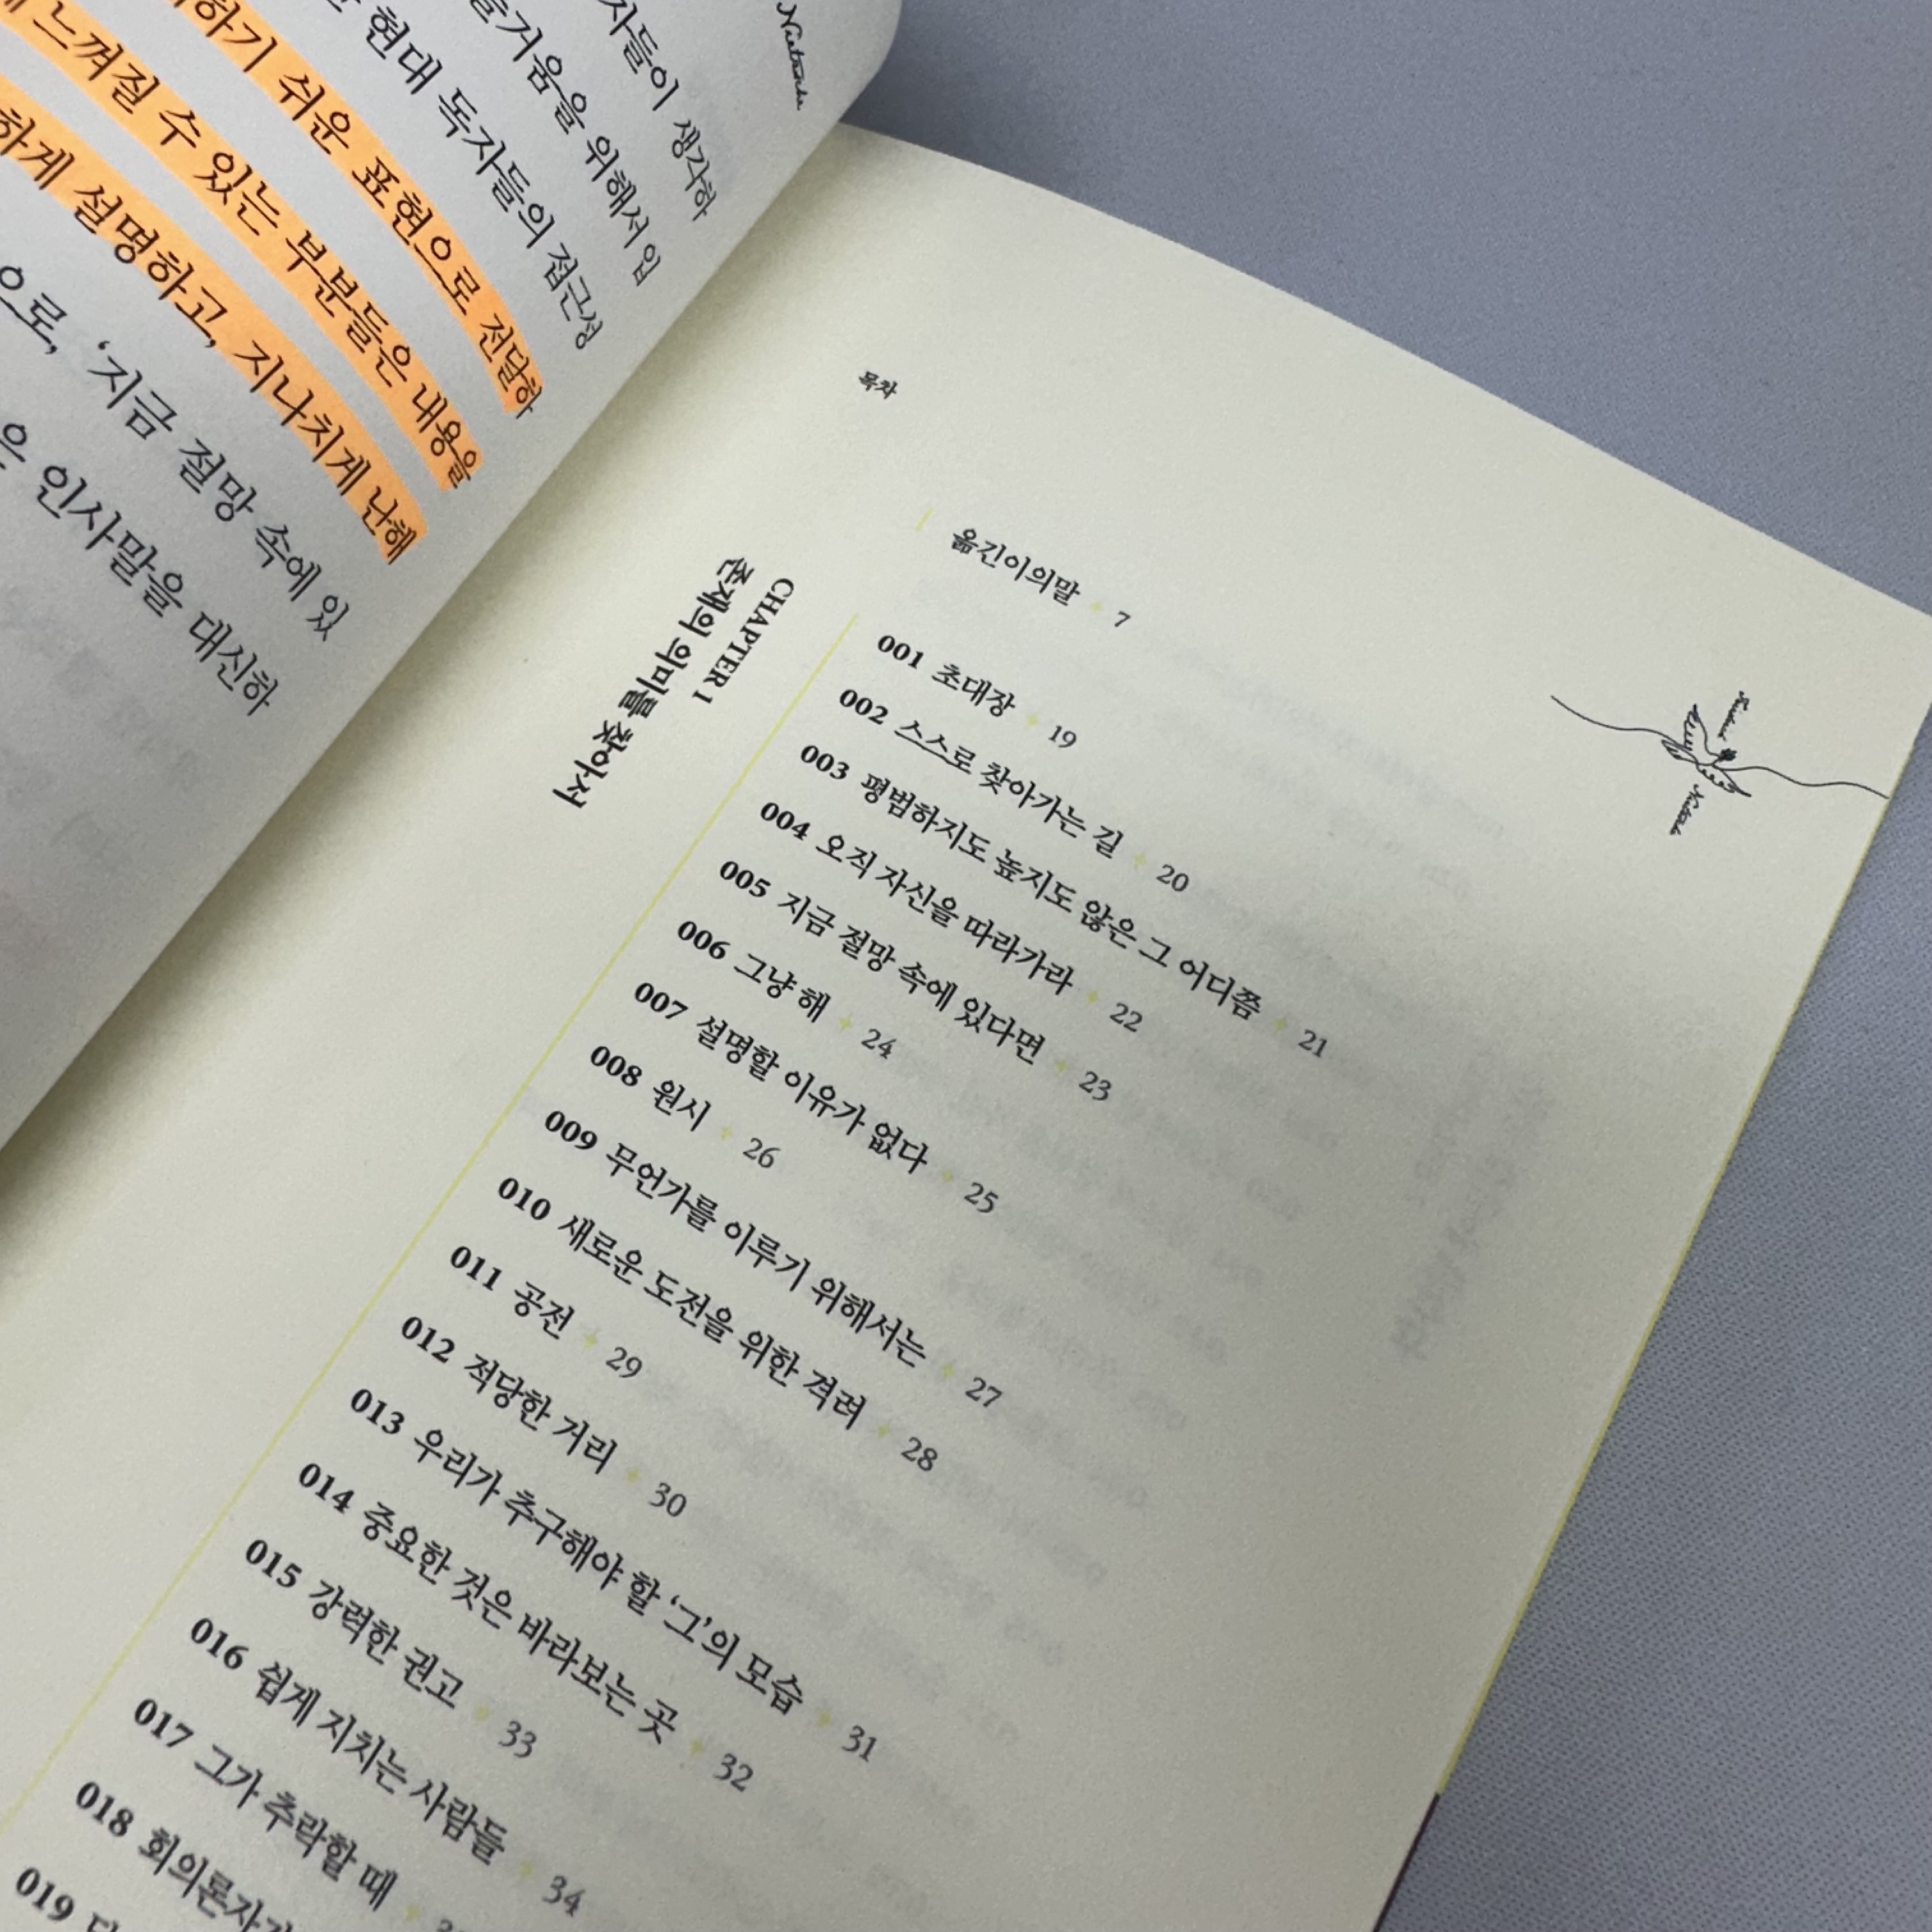 자들이 생각하
즐거움을 위해서 입
현대 독자들의 접근성
하기 쉬운 표현으로 전달하
느껴질 수 있는 부분들은 내용을
하게 설명하고, 지나치게 난해
으로, ‘지금 절망 속에 있
은 인사말을 대신하
목차
옮긴이의 말 7
CHAPTER 1
존재의 의미를 찾아서
001 초대장 19
002 스스로 찾아가는 길 20
003 평범하지도 높지도 않은 그 어디쯤 21
004 오직 자신을 따라가라 22
005 지금 절망 속에 있다면 23
006 그냥 해 24
007 설명할 이유가 없다 25
008 원시 26
009 무언가를 이루기 위해서는 27
010 새로운 도전을 위한 격려 28
011 공전 29
012 적당한 거리 30
013 우리가 추구해야 할 ‘그’의 모습 31
014 중요한 것은 바라보는 곳 32
015 강력한 권고 33
016 쉽게 지치는 사람들 34
017 그가 추락할 때
018 회의론자가
019